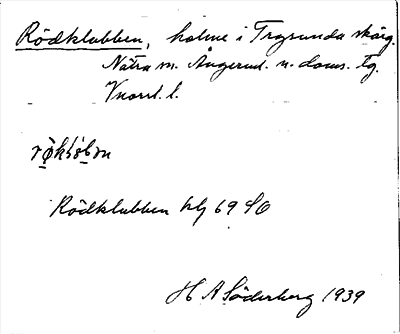 Rödklubben, holme i Trysunda skärg.
Nätra sn. Ångerml. n. doms. tg.
Vnorrl. l.
Rödklubben blz 69 SO
H A Söderberg 1939